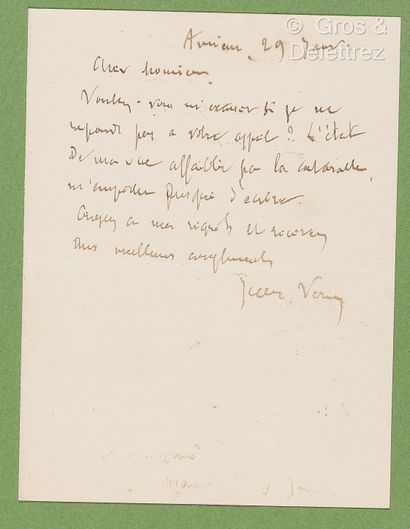 © Gros &
Delettrez
Amiens, 29 Janv.
Cher monsieur,
Voulez-vous m'excuser si je ne
réponds pas à votre appel ? L'état
De ma vue affaiblie par la cataracte,
m'empêche presque d'écrire.
Croyez à mes regrets et recevez
mes meilleurs compliments
Jules Verne